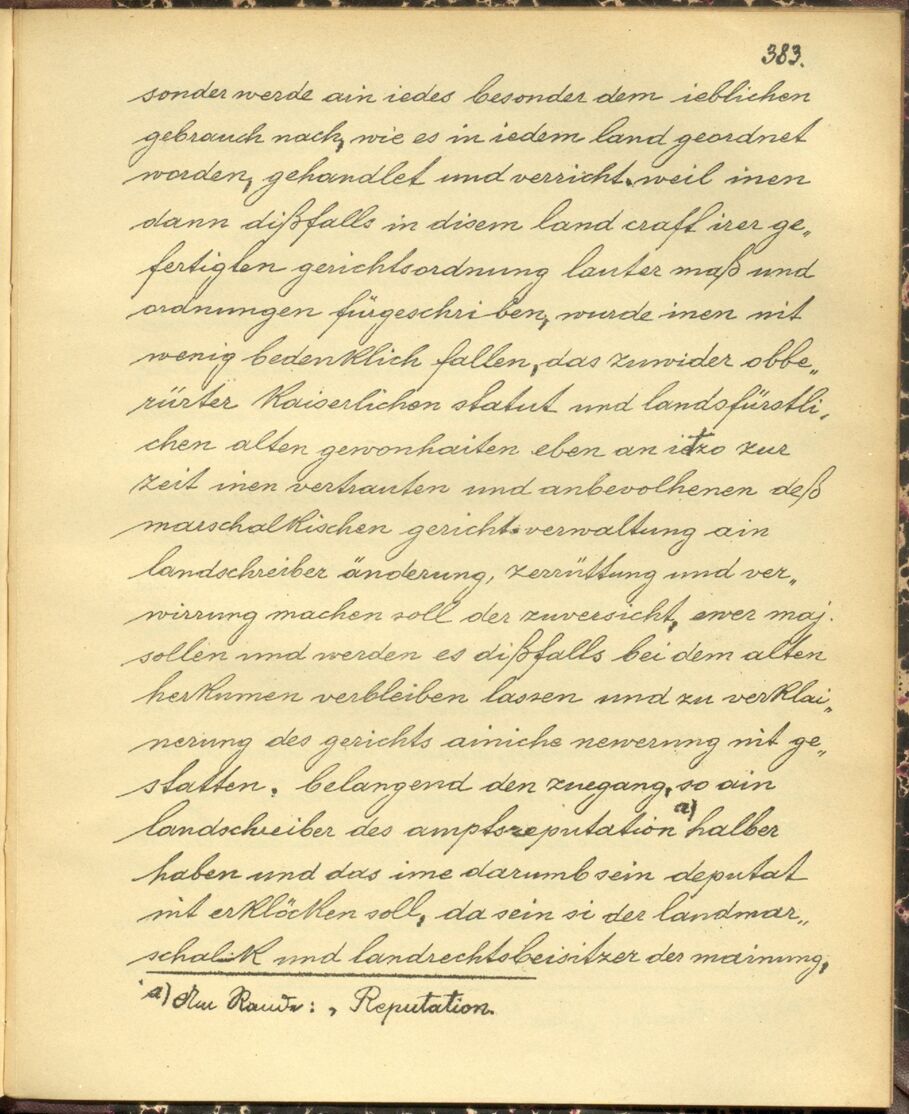 383.
sonder werde ain iedes besonder dem ieblichen
gebrauch nach, wie es in iedem land geordnet
worden, gehandlet und verricht. weil inen
dann dißfalls in disem land craft irer ge„
fertigten gerichtsordnung lauter maß und
ordnungen fürgeschriben, wurde inen nit
wenig bedenklich fallen, das zuwider obbe„
rürter kaiserlichen statut und landsfürstli„
chen alten gewonhaiten eben an ietzo zur
zeit inen vertrauten und anbevolhenen deß
marschalkischen gerichtsverwaltung ain
landschreiber änderung, zerrüttung und ver„
wirrung machen soll der zuversicht, ewer maj.
sollen und werden es dißfalls bei dem alten
herkumen verbleiben lassen und zu verklai„
nerung des gerichts ainiche newerung nit ge„
statten. belangend den zuegang, so ain
landschreiber des amptsreputation a) halber
haben und das ime darumb sein deputat
nit erklöcken soll, da sein si der landmar„
schalk und landrechtsbeisitzer der mainung,
a) Am Rande: „ Reputation.